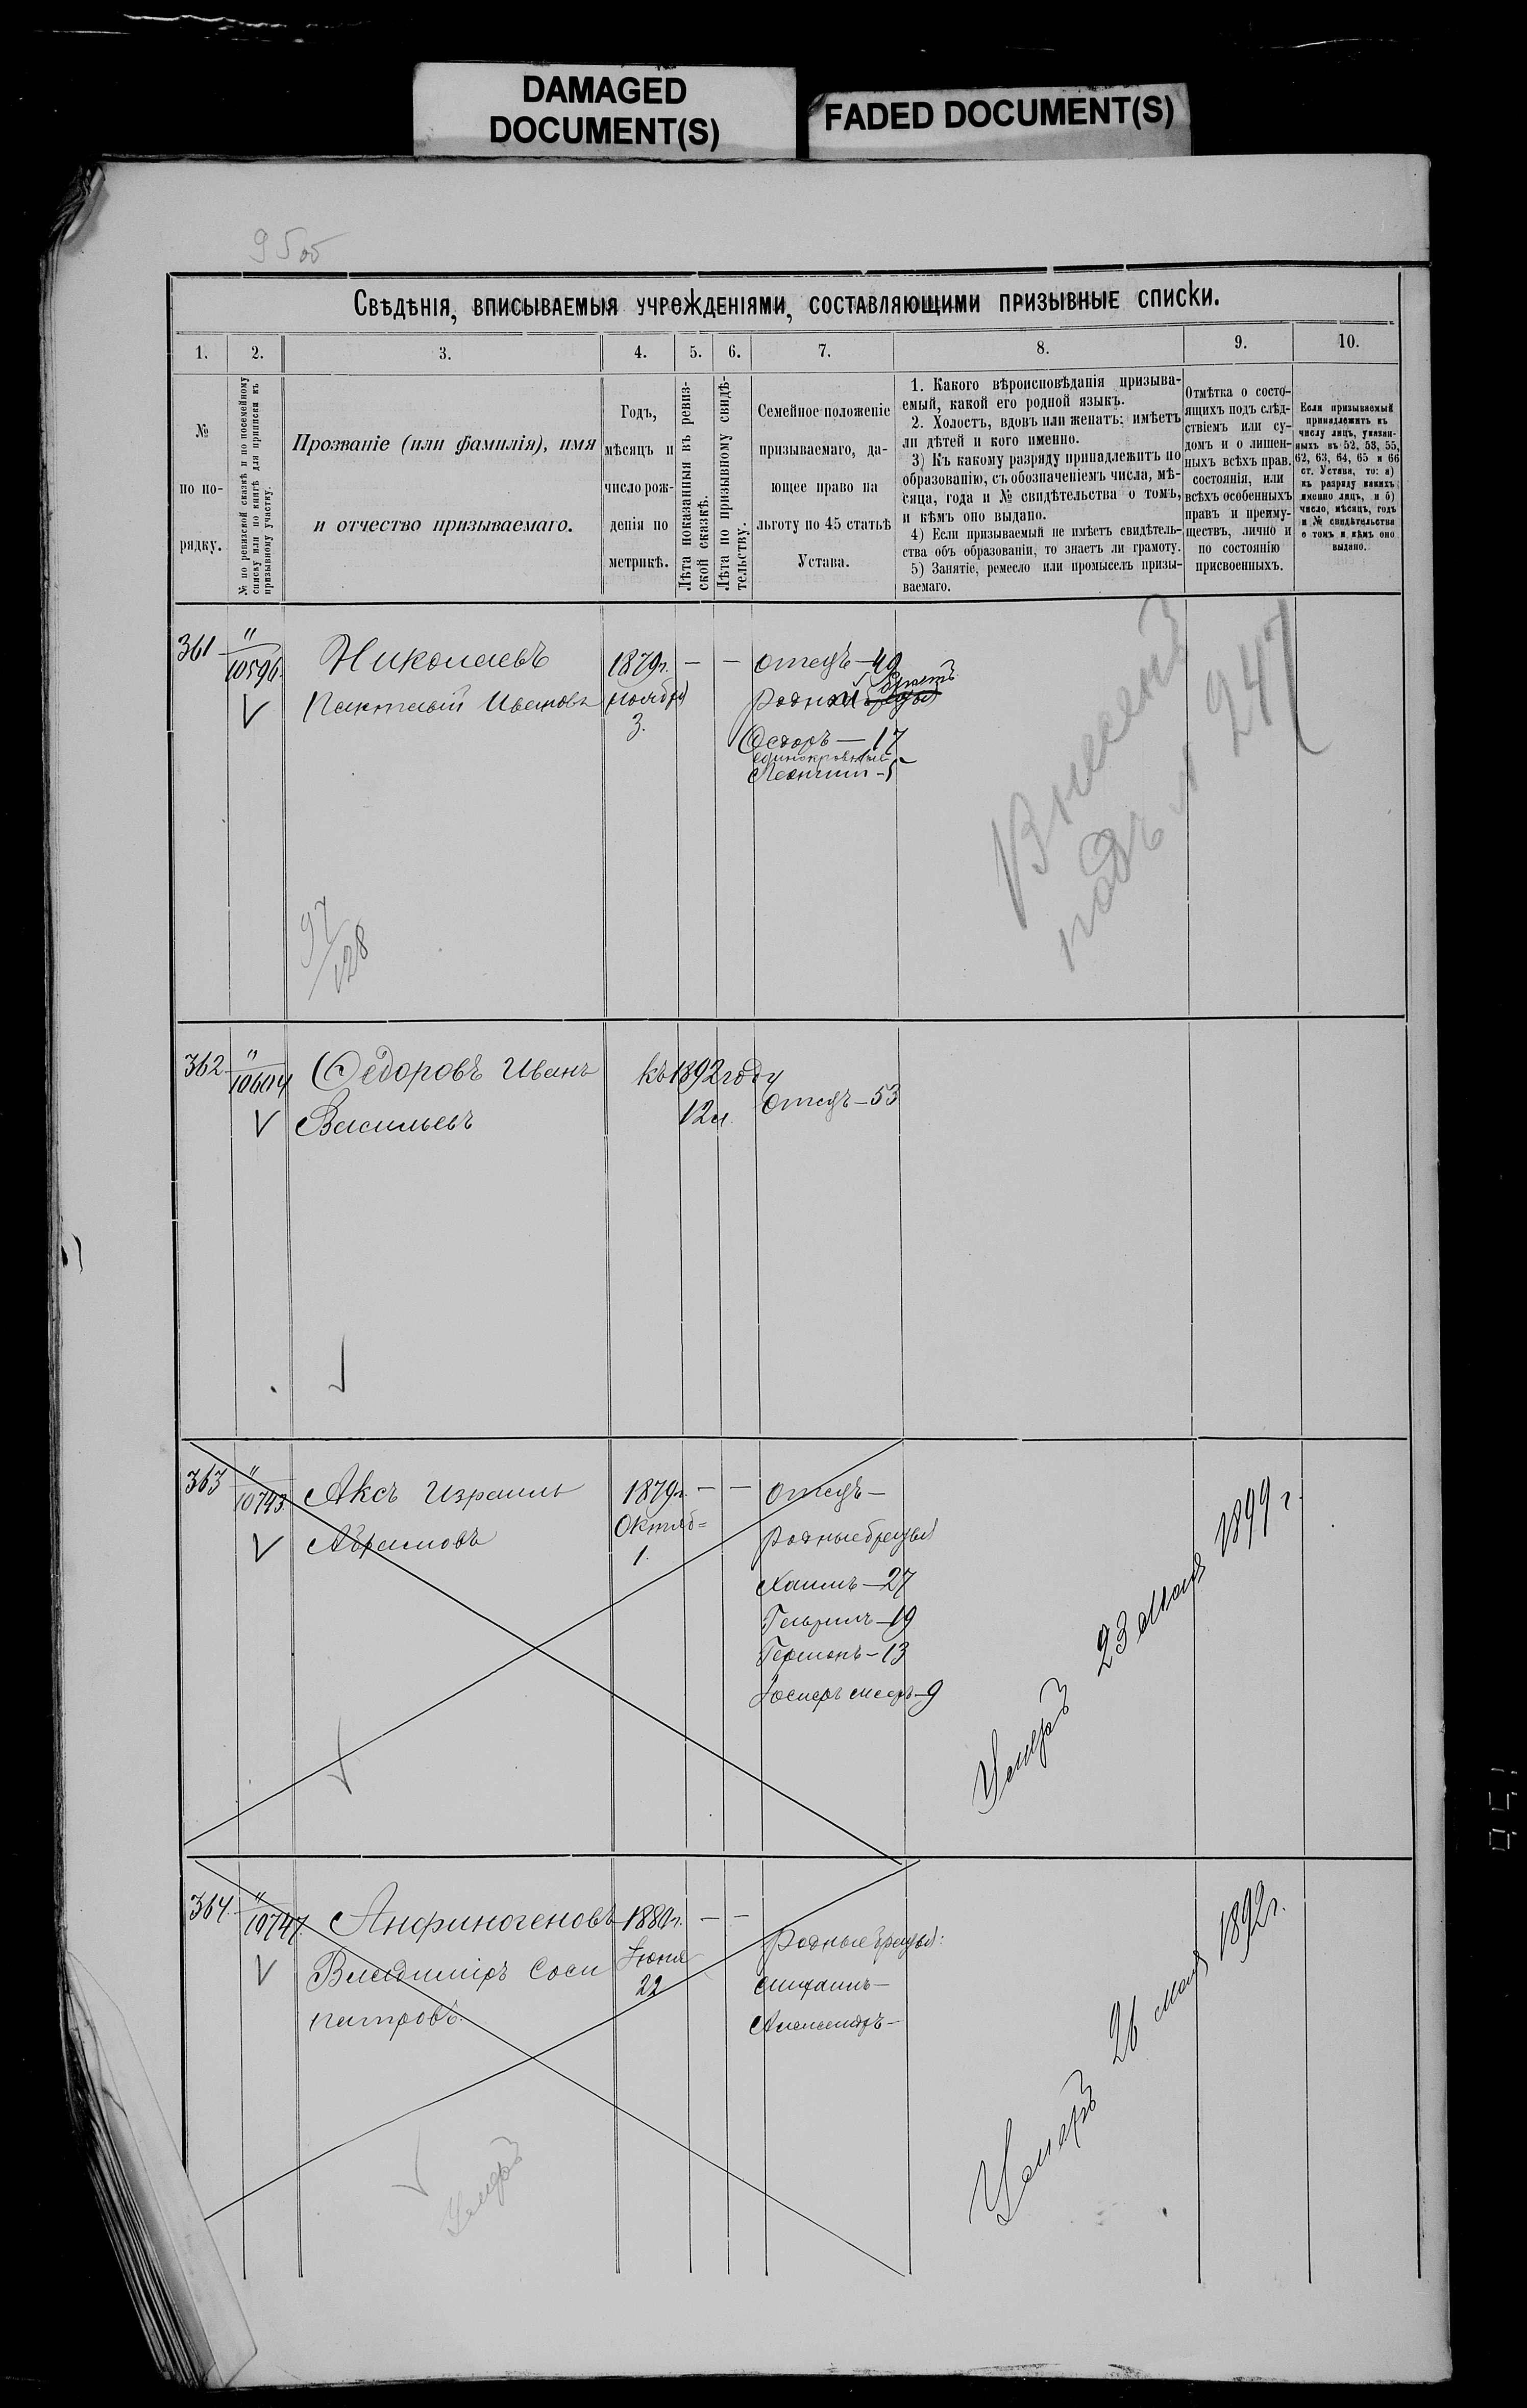 DAMAGED
DOCUMENT(S)
FADED DOCUMENT(S)
Свѣдѣнія, вписываемыя учрежденіями, составляющими призывные списки.
1. 2. 3. 4. 5. 6. 7. 8. 9. 10.
№
по по-
рядку.
№ по ревизской сказкѣ и по посемейному
списку или по книгѣ для приписки къ
призывному участку.
Прозваніе (или фамилія), имя
и отчество призываемаго.
Годъ,
мѣсяцъ и
число рож-
денія по
метрикѣ.
Лѣта показанныя въ ревиз-
ской сказкѣ.
Лѣта по призывному свидѣ-
тельству.
Семейное положеніе
призываемаго, да-
ющее право на
льготу по 45 статьѣ
Устава.
1. Какого вѣроисповѣданія призыва-
емый, какой его родной языкъ.
2. Холостъ, вдовъ или женатъ; имѣетъ
ли дѣтей и кого именно.
3) Къ какому разряду принадлежитъ по
образованію, съ обозначеніемъ числа, мѣ-
сяца, года и № свидѣтельства о томъ,
и кѣмъ оно выдано.
4) Если призываемый не имѣетъ свидѣтель-
ства объ образованіи, то знаетъ ли грамоту.
5) Занятіе, ремесло или промыселъ призы-
ваемаго.
Отмѣтка о состо-
ящихъ подъ слѣд-
ствіемъ или су-
домъ и о лишен-
ныхъ всѣхъ прав.
состоянія, или
всѣхъ особенныхъ
правъ и преиму-
ществъ, лично и
по состоянію
присвоенныхъ.
Если призываемый
принадлежитъ къ
числу лицъ, указан-
ныхъ въ 52, 53, 55,
62, 63, 64, 65 и 66
ст. Устава, то: а)
къ разряду какихъ
именно лицъ, и б)
число, мѣсяцъ, годъ
и № свидѣтельства
о томъ и кѣмъ оно
выдано.
361 " 10596. Николаевъ 1879г. — — отецъ—49
Пактавій Ивановъ ноября 3. Родной братъ
Ѳедоръ—17
единокровный
Леонтій—5
Внесенъ
подъ № 247
97/128
362 " 10604 Ѳедоровъ Иванъ къ 1892 году
Васильевъ 12л. отецъ—53
363 " 10743 Аксъ Израиль 1879г. — — отецъ—
Абрамовъ Октяб= 1. родные братья
Хаимъ—27
Гавріилъ—19
Германъ—13
9
Умеръ 23 Мая 1899 г.
364. " 10747. Анфиногеновъ 1880г. — —
Владиміръ Соси Іюня 22 родные братья:
патровъ. Михаилъ—
Александръ—
Умеръ 26 мая 1892г.
Умеръ